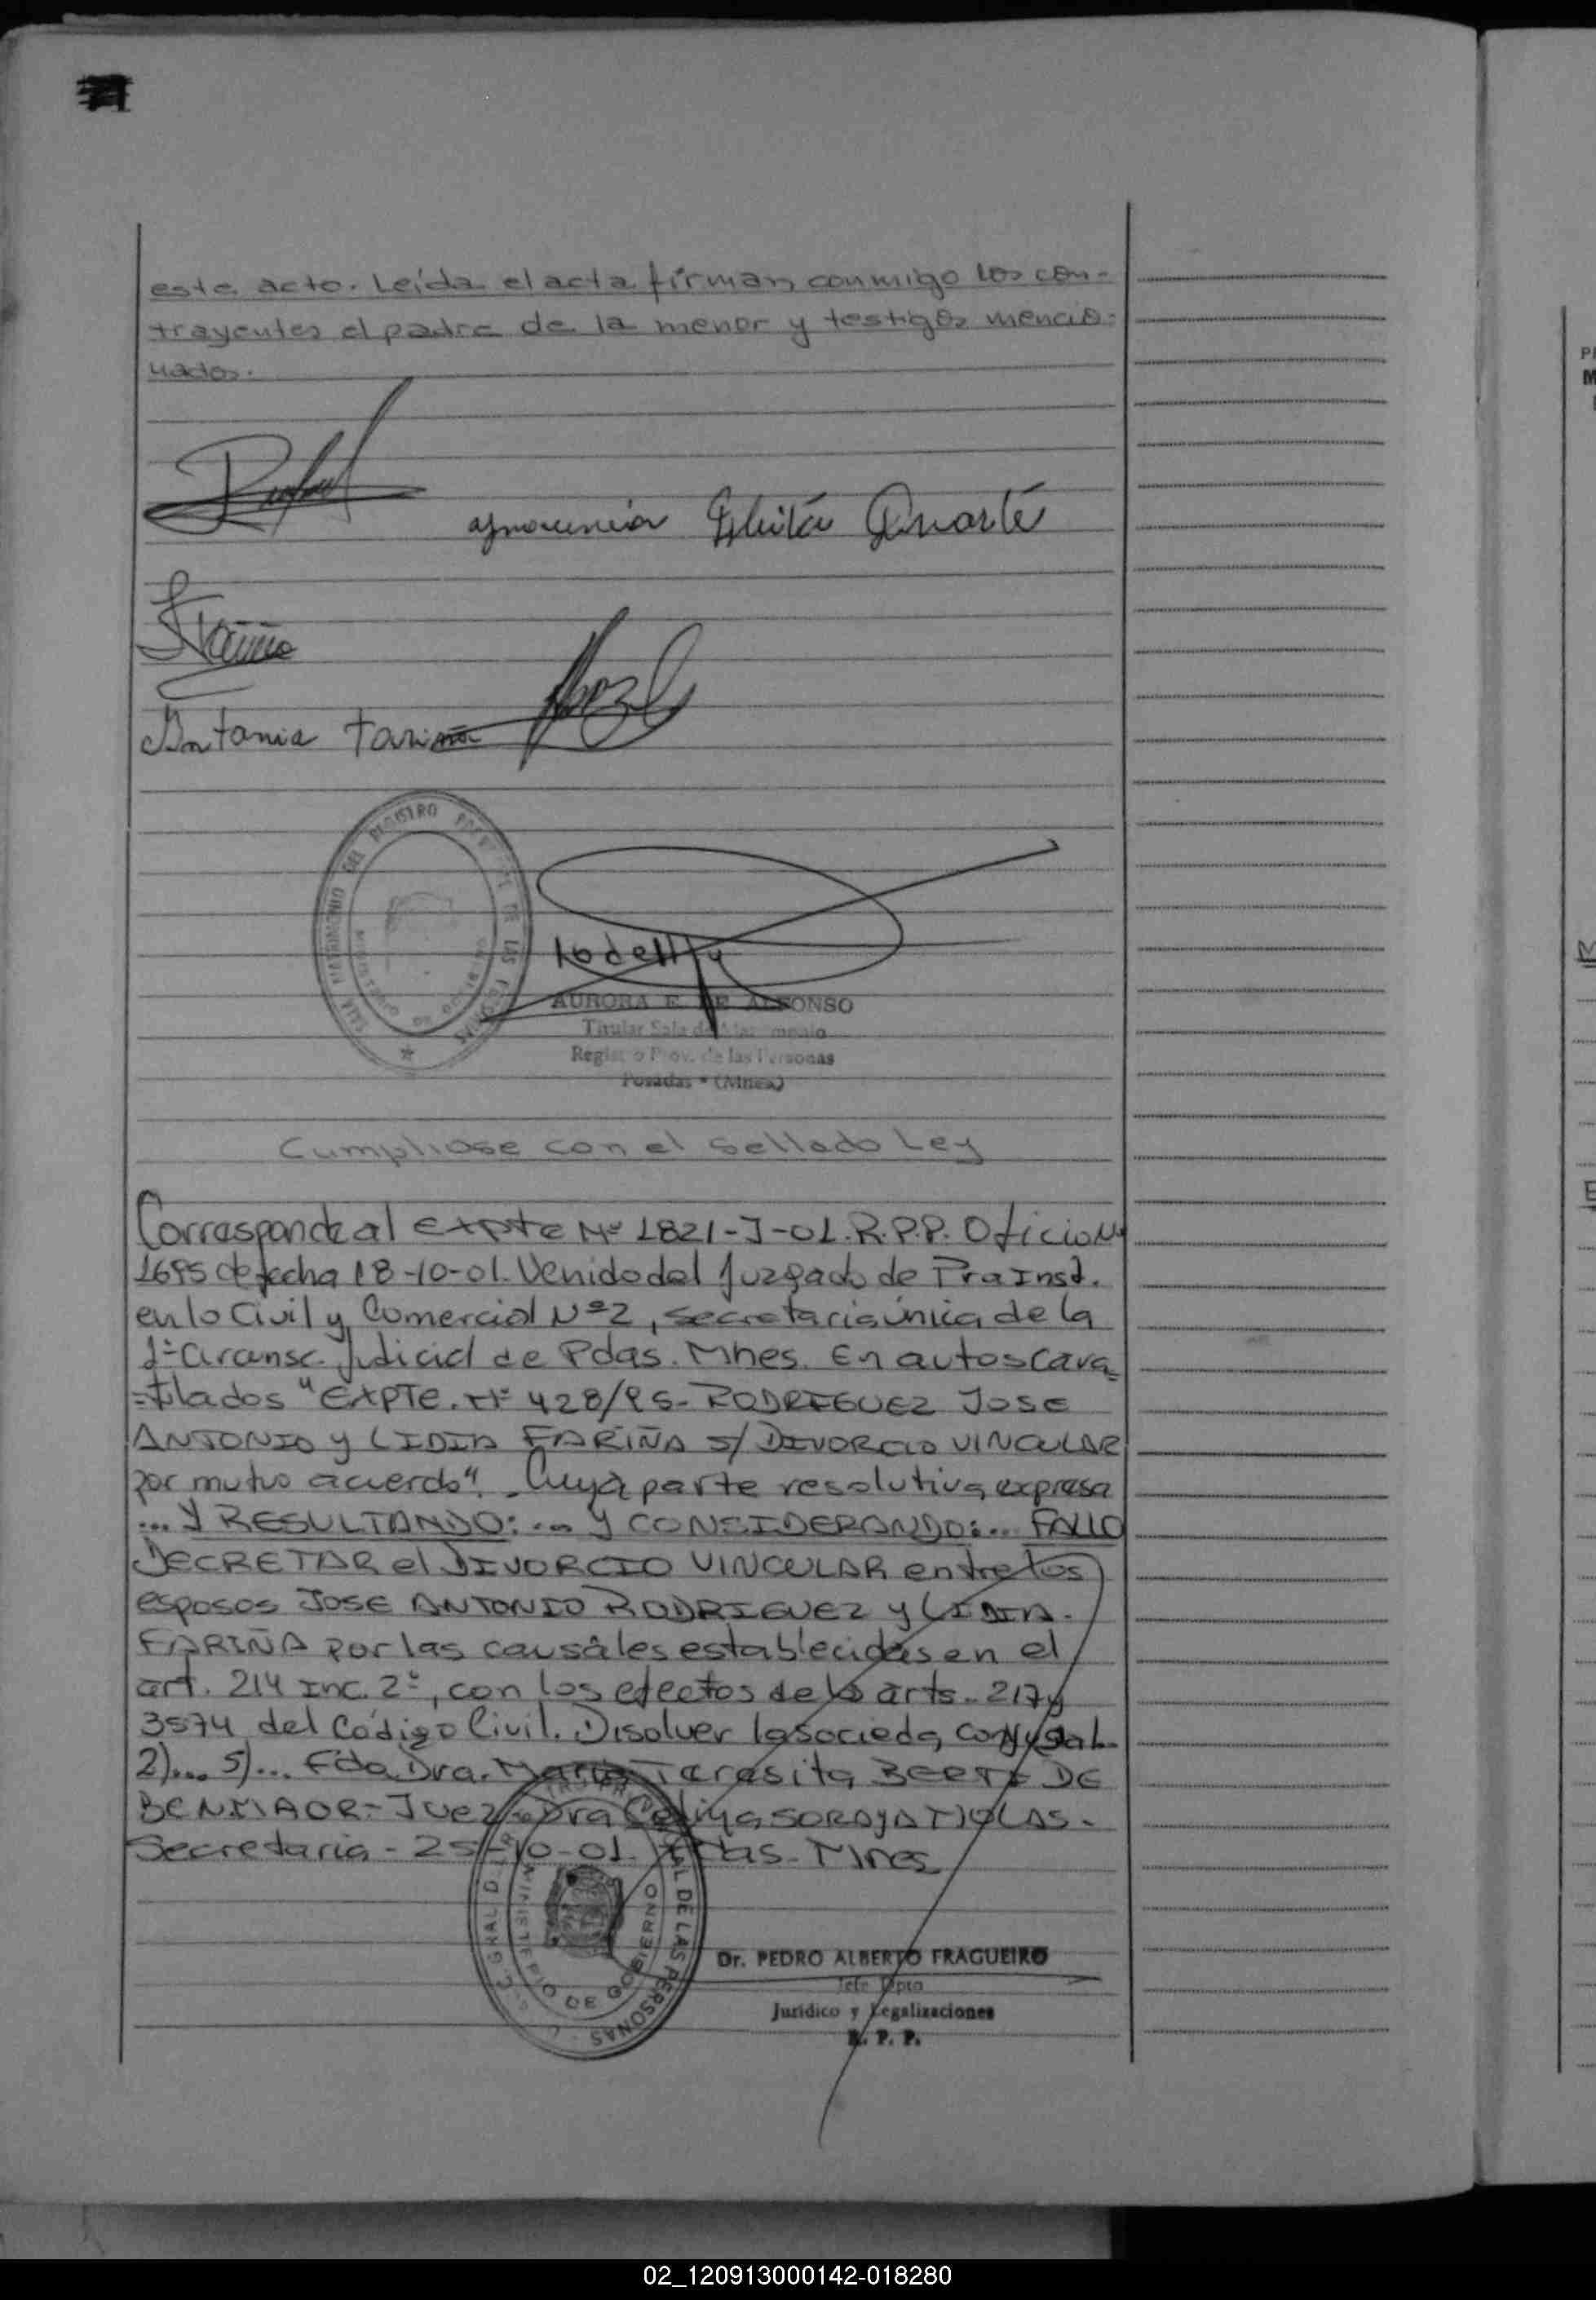 este acto. Leída el acta firman conmigo los con-
trayentes el padre de la menor y testigos mencio-
nados.
Antonia Fariña
SALA MATRIMONIO DEL REGISTRO PROVINCIAL DE LAS PERSONAS
MINISTERIO DE GOBIERNO
AURORA E. DE ALFONSO
Titular Sala de Matrimonio
Registro Prov. de las Personas
Posadas - (Mnes)
Cumpliose con el sellado Ley
Corresponde al Expte Nº 1821-J-01. R.P.P. Oficio Nº
1695 de fecha 18-10-01. Venido del Juzgado de Pra Inst.
en lo Civil y Comercial Nº 2, secretaria única de la
1ª Circunsc. Judicial de Pdas. Mnes. En autos Cara=
=tulados "EXPTE. Nº 428/95- RODRIGUEZ JOSE
ANTONIO y LIDIA FARIÑA S/ DIVORCIO VINCULAR
por mutuo acuerdo". Cuya parte resolutiva expresa
... Y RESULTANDO: ... Y CONSIDERANDO: ... FALLO
DECRETAR el DIVORCIO VINCULAR entre los
esposos JOSE ANTONIO RODRIGUEZ y LIDIA
FARIÑA por las causales establecidas en el
art. 214 inc. 2º, con los efectos de los arts. 217 y
3574 del Código Civil. Disolver la socieda conyugal.
2)... 5)... Fdo Dra. Maria Teresita
DE
Juez Dra
SORAYA
Secretaria - 25-10-01. Pdas. Mnes
MINISTERIO DE GOBIERNO
DE LAS PERSONAS
Dr. PEDRO ALBERTO FRAGUEIRO
Jefe Dpto
Jurídico y Legalizaciones
R. P. P.
02_120913000142-018280